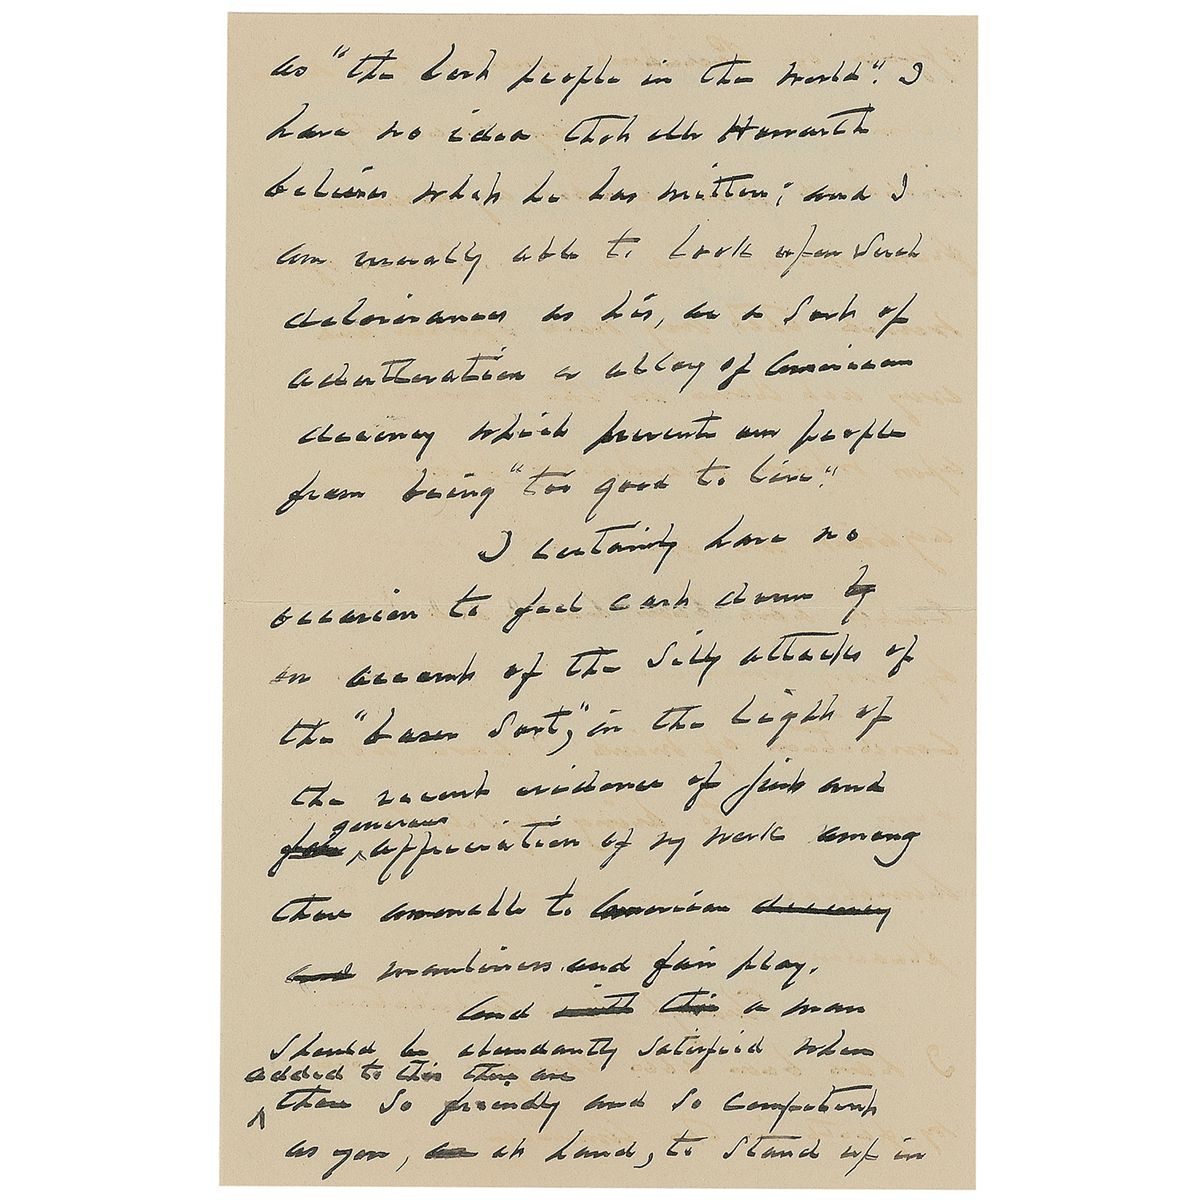 as "the best people in the world". I
have no idea that Mr Howarth
believes what he has written; and I
am usually able to look upon such
deliverances as his, as a sort of
adulteration or alloy of American
decency which prevents our people
from being "too good to live."
I certainly have no
occasion to feel cast down by
on account of the silly attacks of
the "baser sort," in the light of
the recent evidence of just and
generous appreciation of my work among
those amenable to American decency
and manliness and fair play.
And with this a man
should be abundantly satisfied when
added to this there are
those so friendly and so competent
as you, at hand, to stand up in